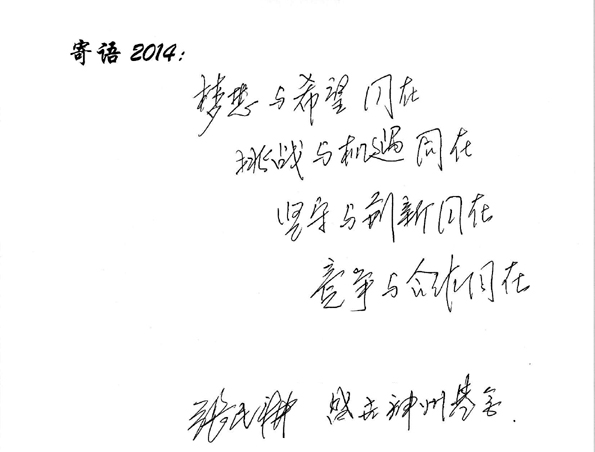 寄语 2014:
梦想与希望同在
挑战与机遇同在
坚守与创新同在
竞争与合作同在
张民耕 盛世神州基金